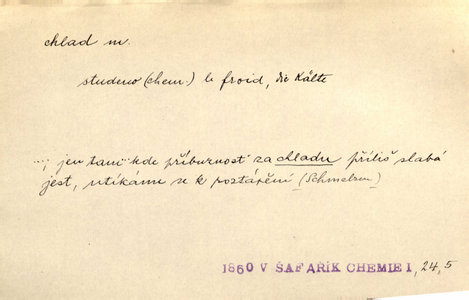 chlad m.
studeno (chem.) le froid, die Kälte
..., jen tam kde příbuznost za chladu příliš slabá
jest, utíkáme se k roztápění (Schmelzen)
1860 V ŠAFAŘÍK CHEMIE I, 24, 5